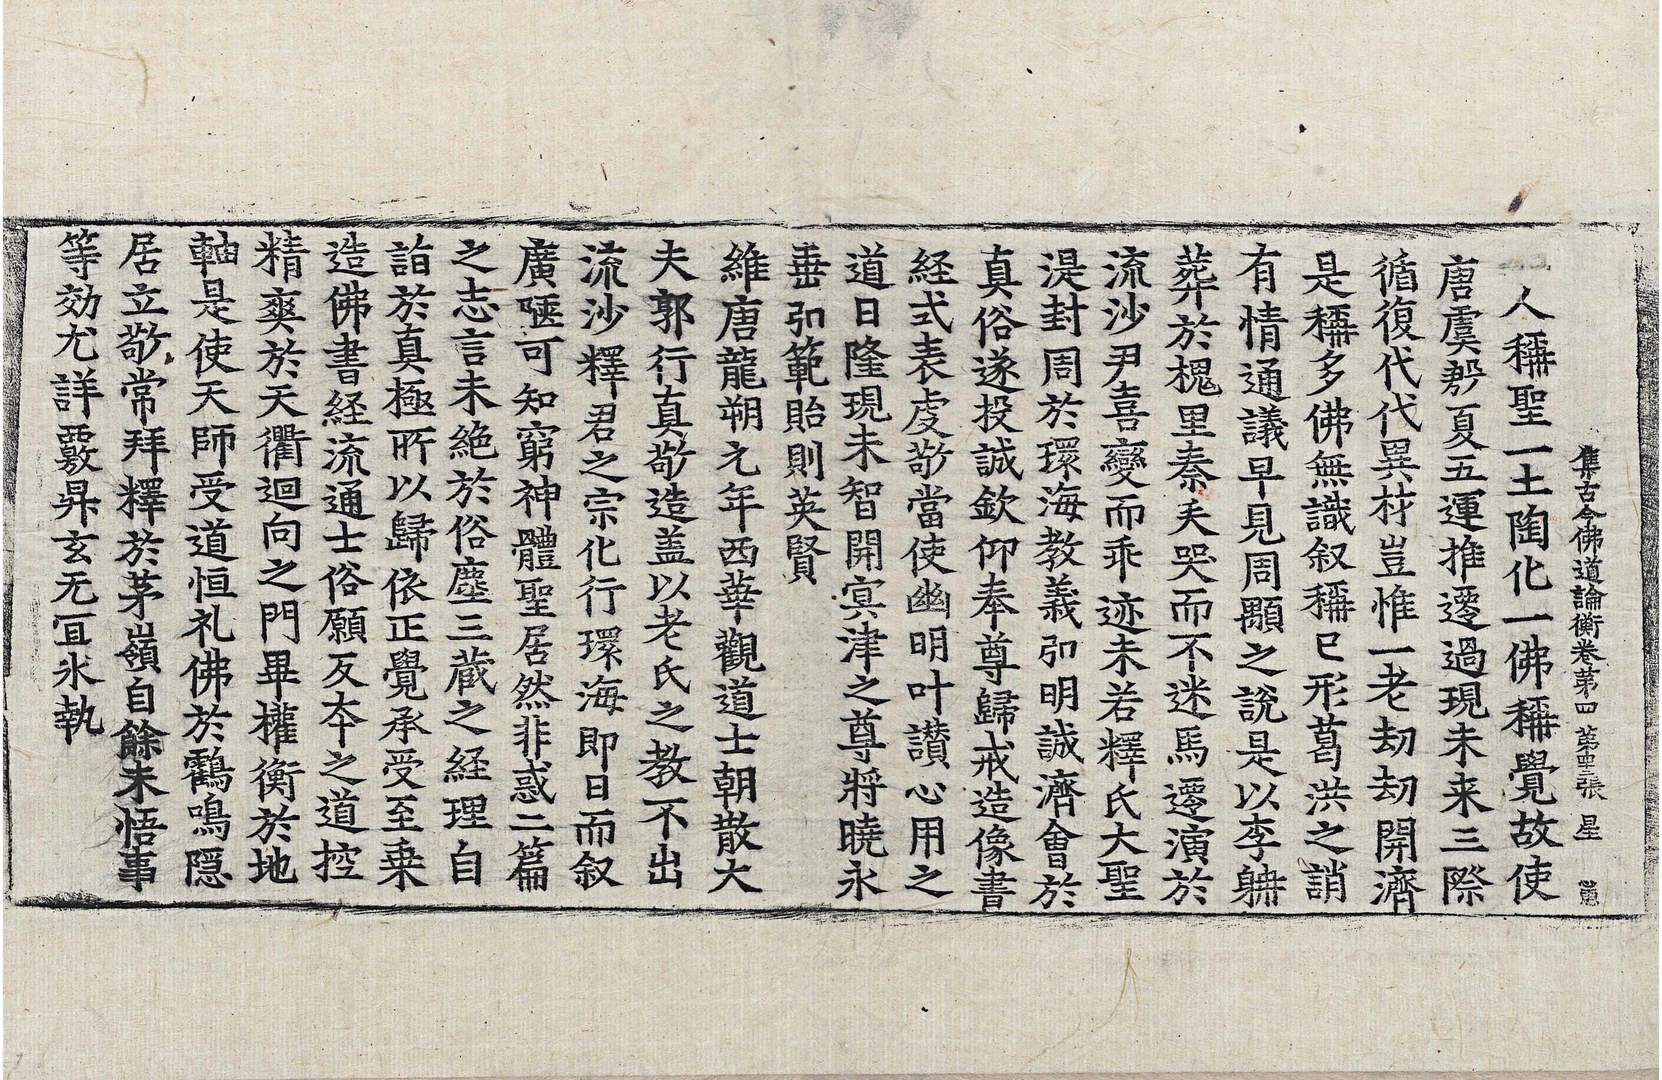 集古今佛道論衡卷第四 第三張 星
人稱聖一土陶化一佛稱覺故使
唐虞夏五運推遷過現未来三際
循復代代異材豈惟一老劫劫開濟
是稱多佛無識叙稱已形葛洪之誚
有情通議早見周顒之說是以李躭
葬於槐里秦失哭而不迷馬遷演於
流沙尹喜變而乖迹未若釋氏大聖
湜封周於環海教義弘明誠濟會於
真俗遂投誠欽仰奉尊歸戒造像書
経式表虔敬當使幽明叶讃心用之
道日隆現未智開冥津之尊將曉永
垂弘範貽則英賢
維唐龍朔元年西華觀道士朝散大
夫郭行真敬造盖以老氏之教不出
流沙釋君之宗化行環海即日而叙
廣陿可知窮神體聖居然非惑二篇
之志言未絶於俗塵三蔵之経理自
詣於真極所以歸依正覺承受至乗
造佛書経流通士俗願反本之道控
精爽於天衢迴向之門畢權衡於地
軸是使天師受道恒礼佛於鸖鳴隠
居立敬常拜釋於茅嶺自餘未悟事
等効尤詳覈昇玄无冝氷執